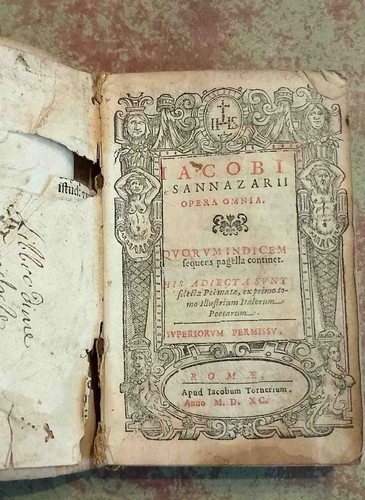 IHS
IACOBI
SANNAZARII
OPERA OMNIA.
QVORVM INDICEM
sequens pagella continet.
HIS ADIECTA SVNT
selecta Poëmata, ex primo to-
mo Illustrium Italorum
Poetarum.
SVPERIORVM PERMISSV.
ROMÆ,
Apud Iacobum Tornerium.
Anno M. D. XC.